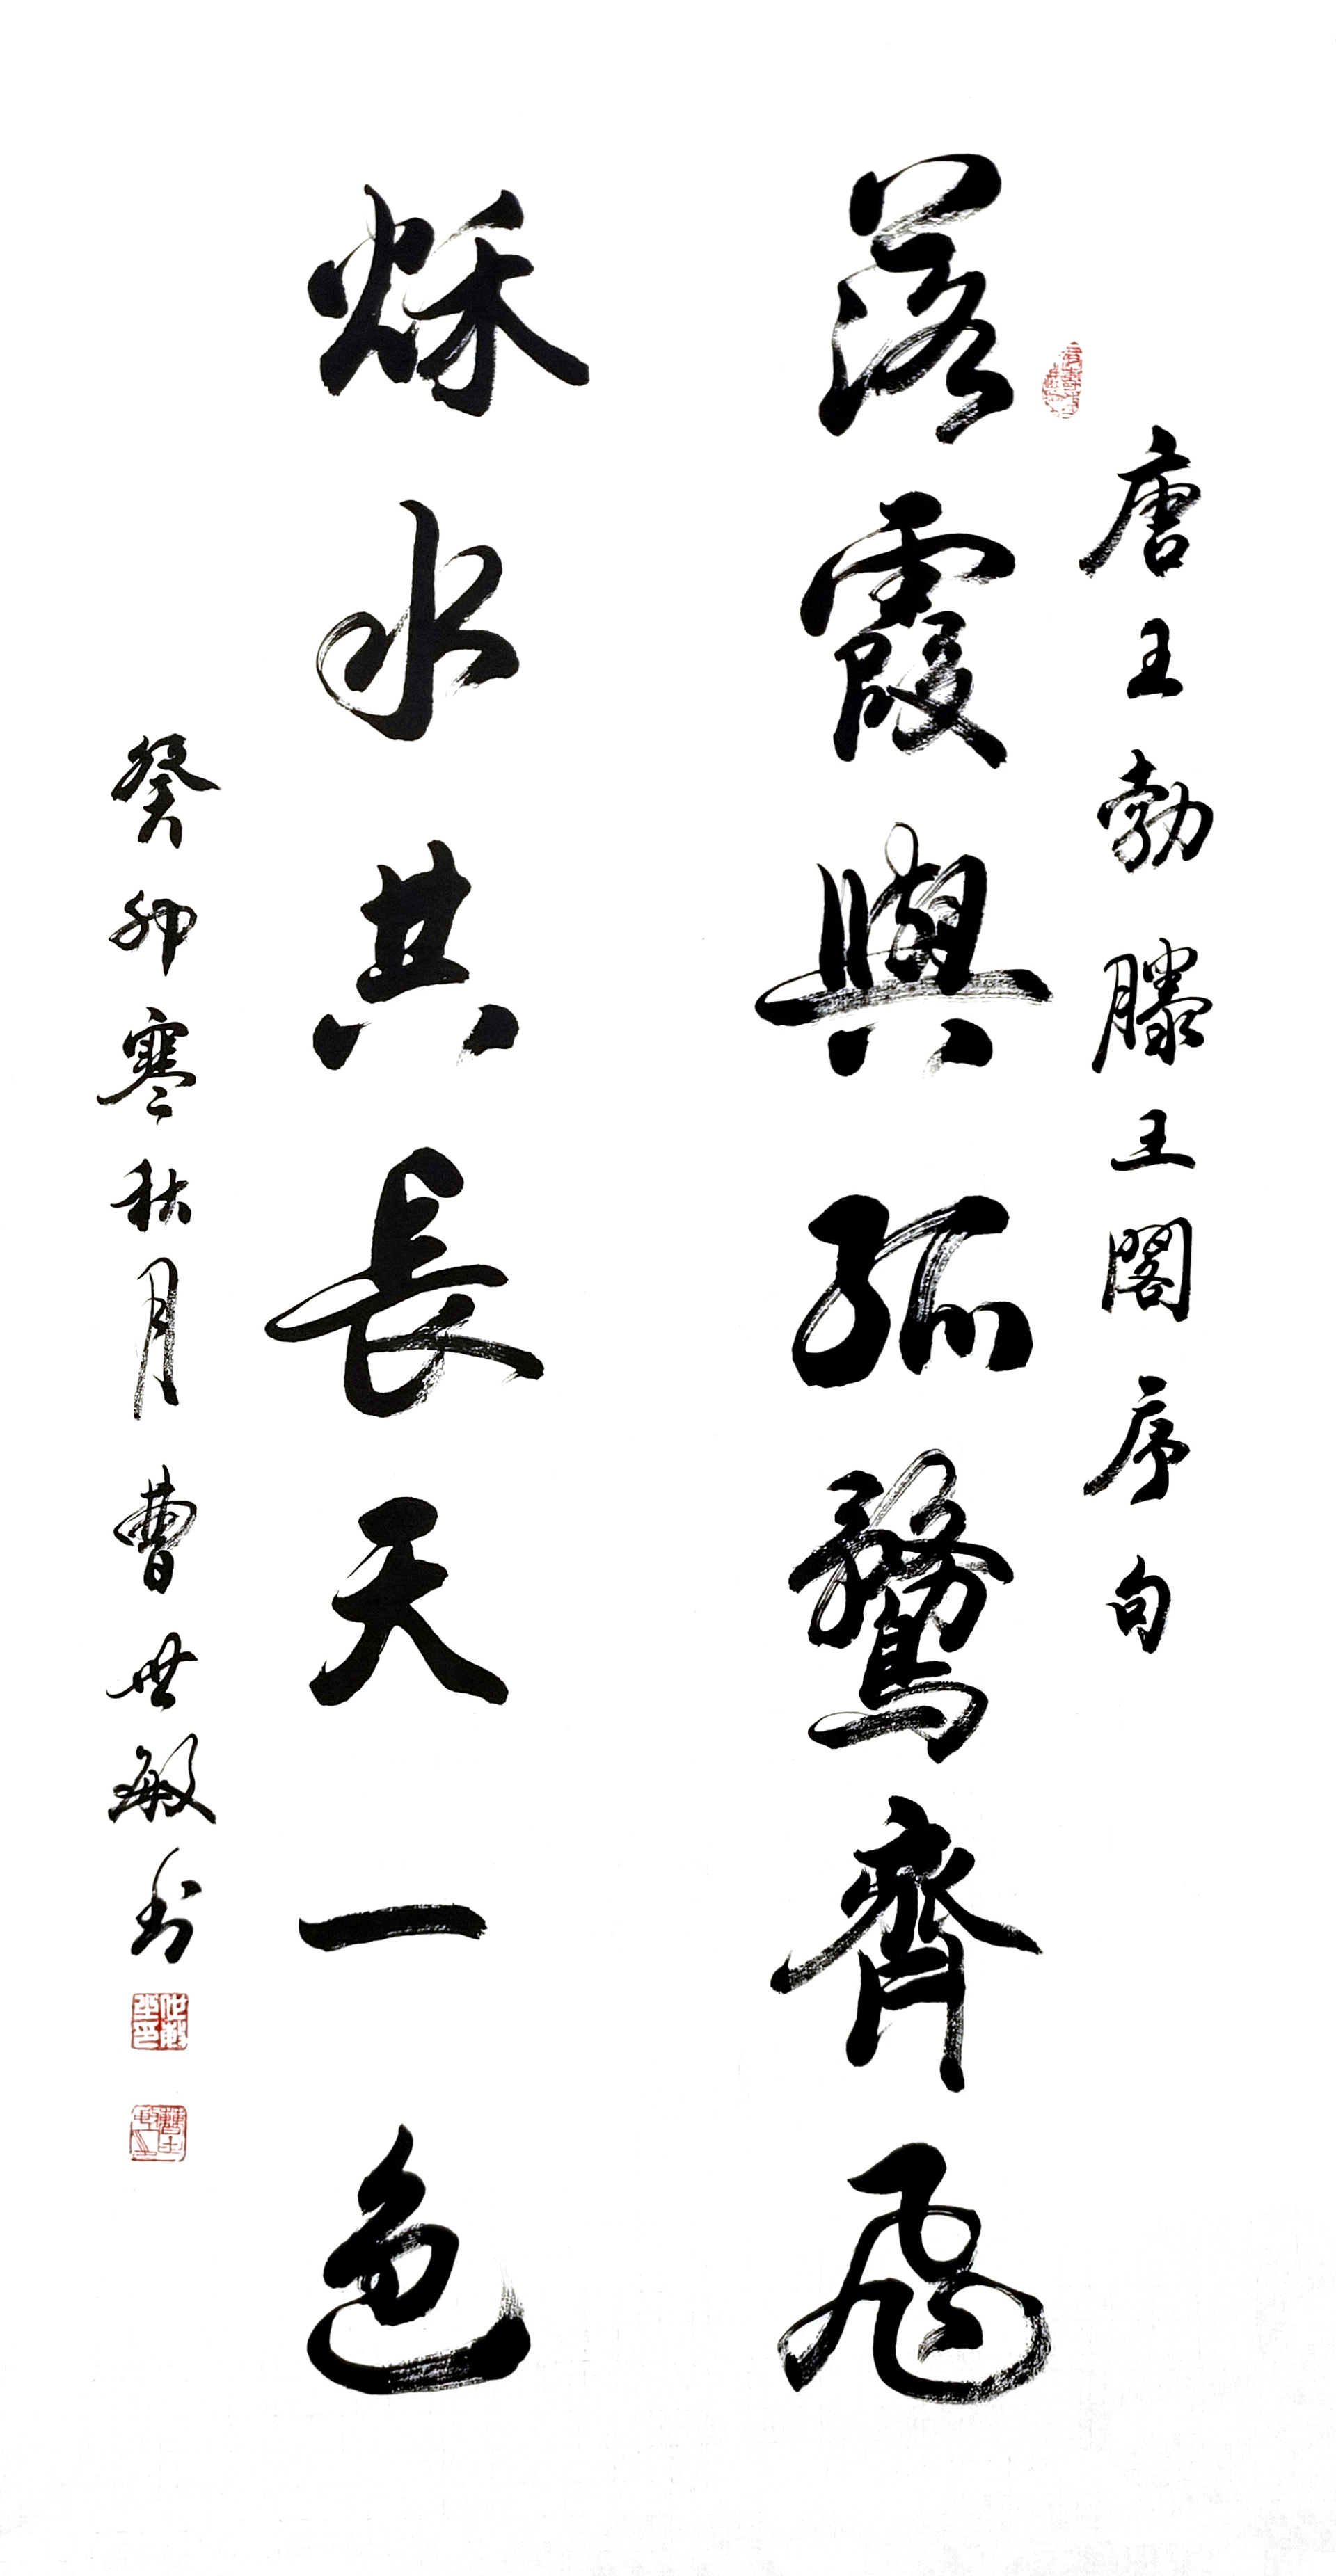 唐王勃滕王閣序句
落霞與孤鶩齊飛
秌水共長天一色
癸卯寒秋月曹世敏書